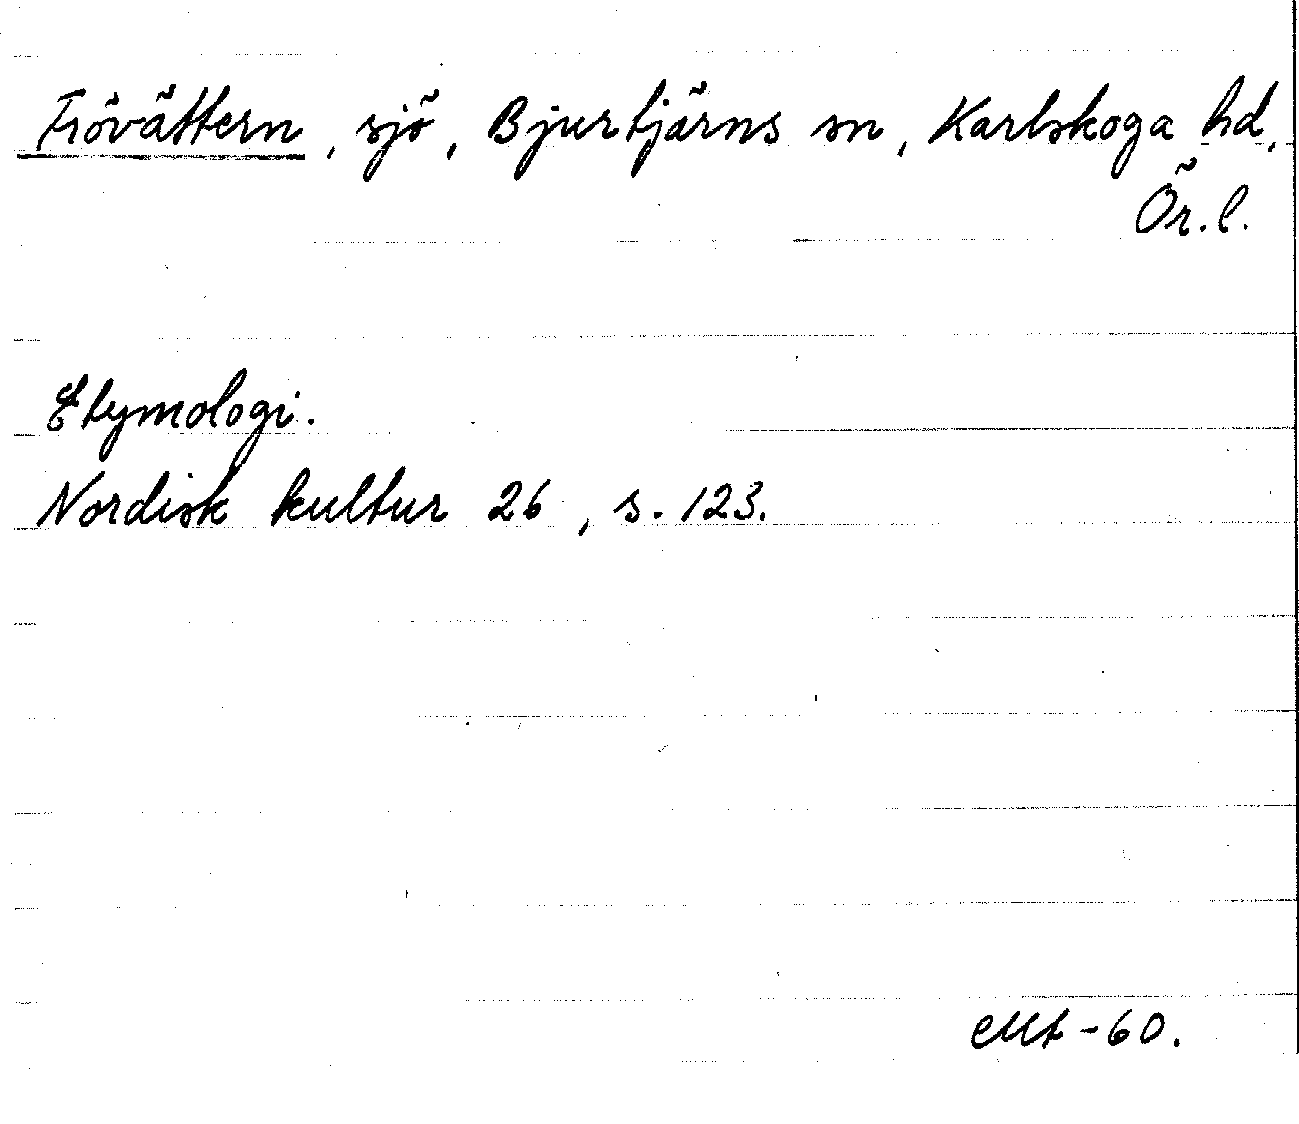 Frövättern, sjö, Bjurtjärns sn, Karlskoga hd,
Ör.l.
Etymologi.
Nordisk kultur 26, s. 123.
-60.